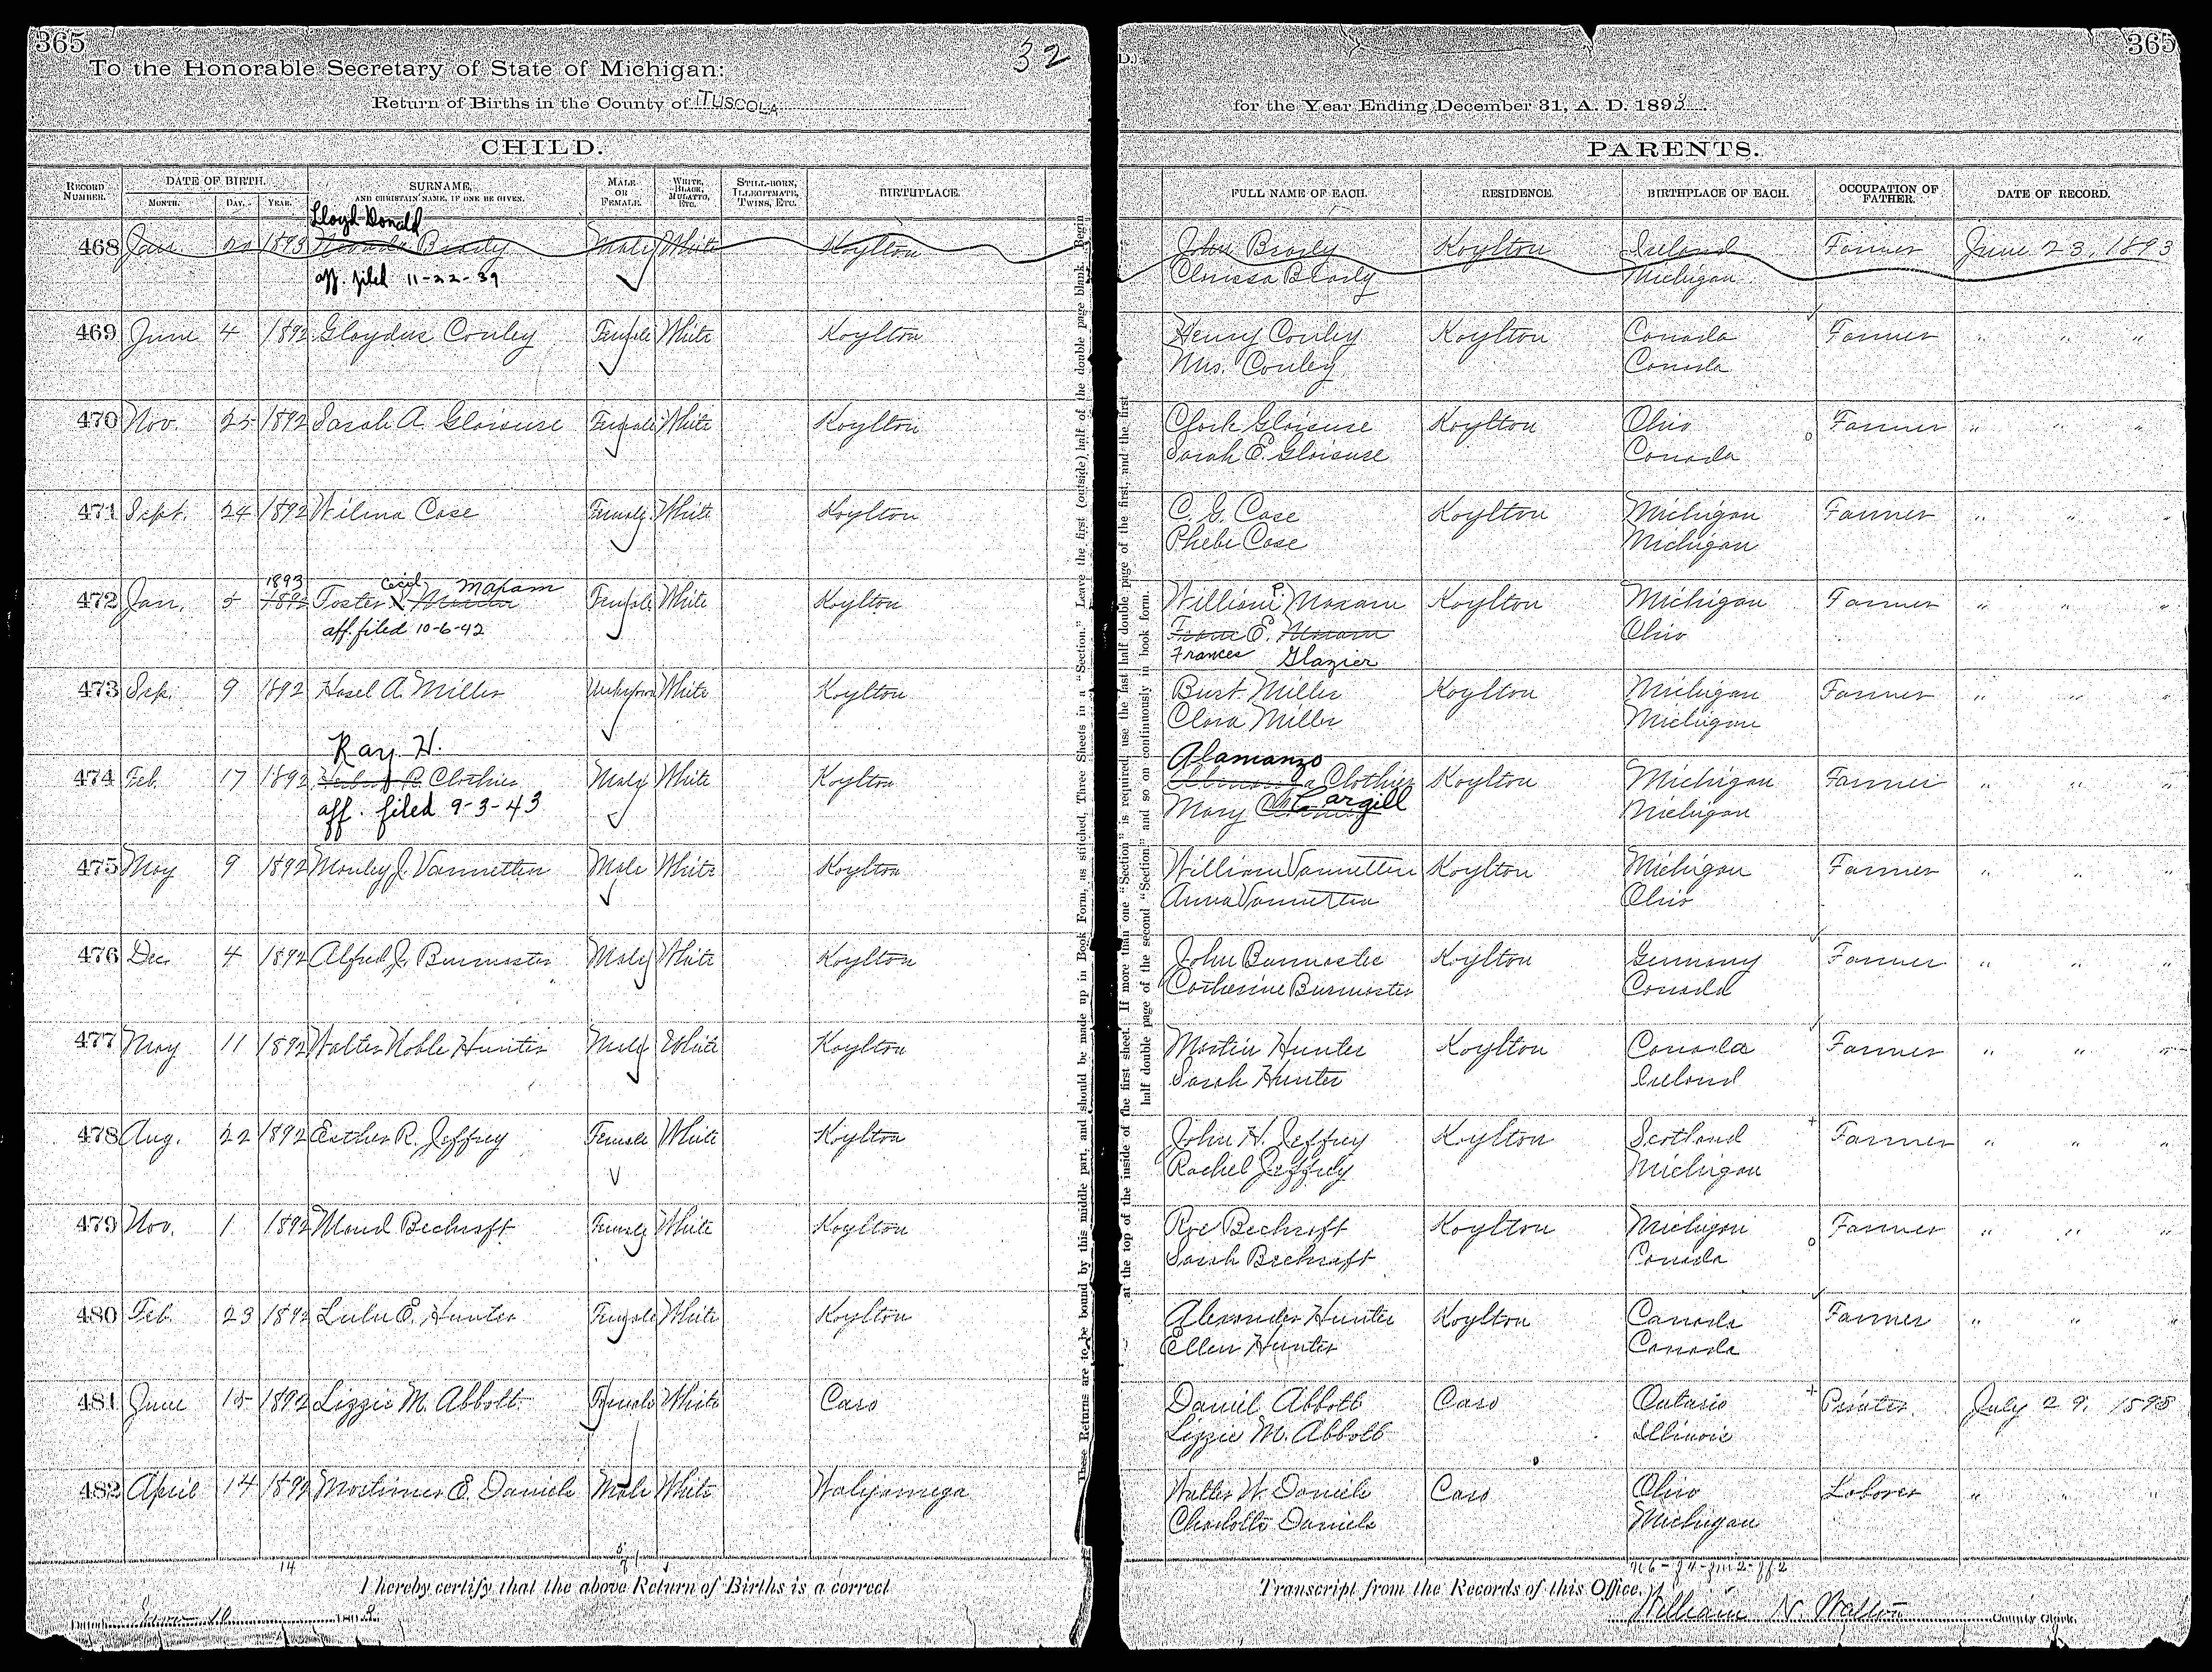 365
365
32
To the Honorable Secretary of State of Michigan:
Return of Births in the County of TUSCOLA
for the Year Ending December 31, A. D. 1893
CHILD.
PARENTS.
RECORD NUMBER.
DATE OF BIRTH.
MONTH. DAY. YEAR.
SURNAME, AND CHRISTAIN NAME, IF ONE BE GIVEN.
MALE OR FEMALE.
WHITE, BLACK, MULATTO, ETC.
STILL-BORN, ILLEGITMATE, TWINS, ETC.
BIRTHPLACE.
FULL NAME OF EACH.
RESIDENCE.
BIRTHPLACE OF EACH.
OCCUPATION OF FATHER.
DATE OF RECORD.
Lloyd Donald
468 Jan. 20 1893 Brady Male White Koylton John Brady Koylton Ireland Farmer June 23, 1893
aff. filed 11-22-39 Clrissa Brady Michigan
469 June 4 1892 Gloydus Conley Female White Koylton Henry Conley Koylton Canada Farmer " " "
Mrs. Conley Canada
470 Nov. 25 1892 Sarah A. Gloisuse Female White Koylton Clark Gloisuse Koylton Ohio Farmer " " "
Sarah E. Gloisuse Canada
471 Sept. 24 1892 Wilma Case Female White Koylton C. G. Case Koylton Michigan Farmer " " "
Phebe Case Michigan
1893 Cecil Maxam
472 Jan. 5 1892 Foster Female White Koylton William P. Maxam Koylton Michigan Farmer " " "
aff. filed 10-6-42 E. Maxam Ohio
Frances Glazier
473 Sep. 9 1892 Hasel A. Miller Unknown White Koylton Burt. Miller Koylton Michigan Farmer " " "
Clara Miller Michigan
Ray H. Alamanzo
474 Feb. 17 1892 Hubert R. Clothier Male White Koylton Clothier Koylton Michigan Farmer " " "
aff. filed 9-3-43 Mary Cargill Michigan
475 May 9 1892 Manley J. Vannetten Male White Koylton William Vannetten Koylton Michigan Farmer " " "
Anna Vannetten Ohio
476 Dec. 4 1892 Alfred J. Burmaster Male White Koylton John Burmaster Koylton Germany Farmer " " "
Catherine Burmaster Canada
477 May 11 1892 Walter Noble Hunter Male White Koylton Martin Hunter Koylton Canada Farmer " " "
Sarah Hunter Ireland
478 Aug. 22 1892 Esther R. Jeffrey Female White Koylton John H. Jeffrey Koylton Scotland Farmer " " "
Rachel Jeffrey Michigan
479 Nov. 1 1892 Maud Bechraft Female White Koylton Roe Bechraft Koylton Michigan Farmer " " "
Sarah Bechraft Canada
480 Feb. 23 1892 Lulu E. Hunter Female White Koylton Alexander Hunter Koylton Canada Farmer " " "
Ellen Hunter Canada
481 June 15 1892 Lizzie M. Abbott Female White Caro Daniel Abbott Caro Ontario Printer July 29, 1893
Lizzie M. Abbott Illinois
482 April 14 1892 Mortimer E. Daniels Male White Wahjamega Walter W. Daniels Caro Ohio Laborer " " "
Charlotte Daniels Michigan
14
These Returns are to be bound by this middle part, and should be made up in Book Form, as stitched, Three Sheets in a "Section." Leave the first (outside) half of the double page blank. Begin
at the top of the inside of the first sheet. If more than one "Section" is required, use the last half double page of the first, and the first
half double page of the second "Section" and so on continuously in book form.
I hereby certify that the above Return of Births is a correct
Transcript from the Records of this Office.
William N. Walton County Clerk.